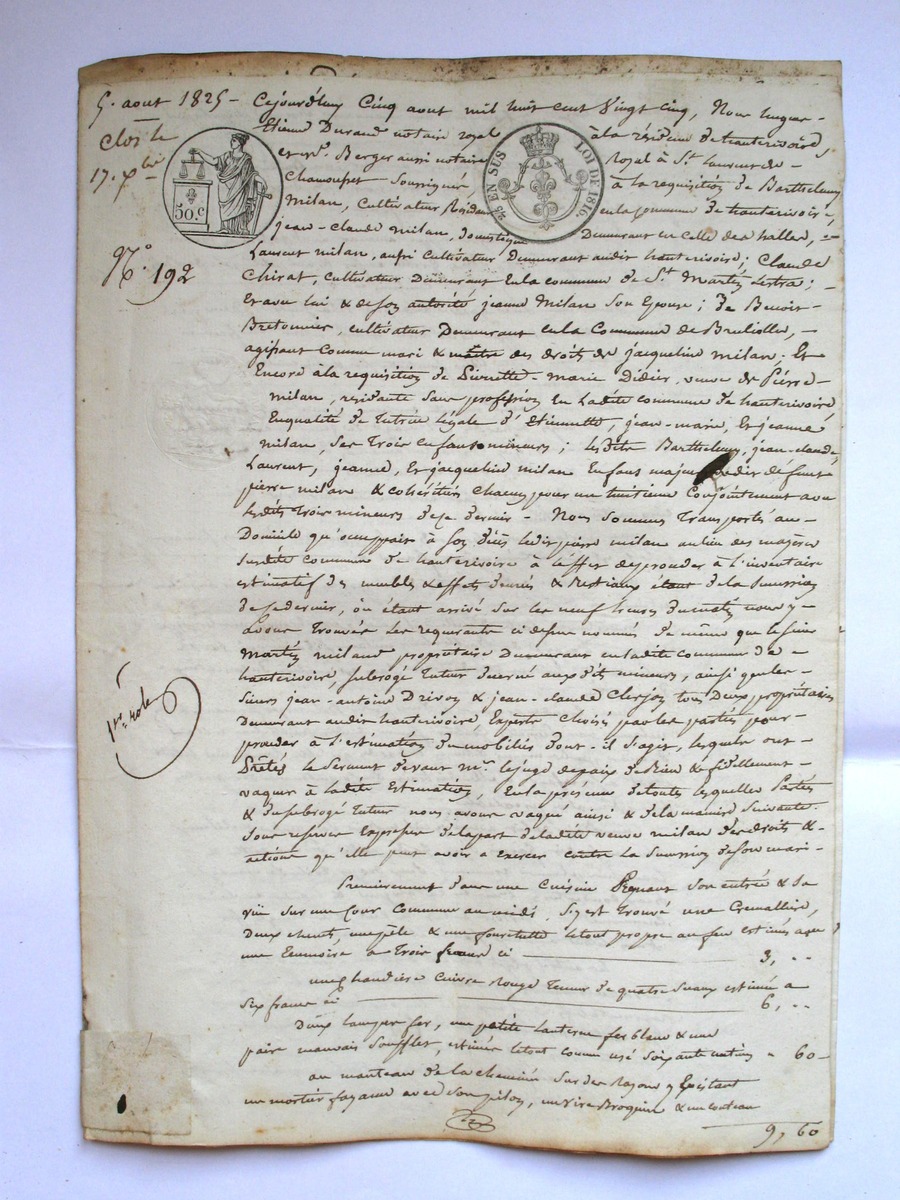 5. aout 1825 -
Clos le
17. Xbre
N°. 192
50.c
¼ EN SUS LOI DE 1816.
Cejourd'huy Cinq aout mil huit cent Vingt cinq, Nous
Etienne Durand notaire royal à la résidence de hauterivoire
et Berger aussi notaire Royal à St Laurent de
Chamousset Soussignés à la requisition de Barthelemy
Milan, Cultivateur Residant en la commune de hauterivoire,
jean-Claude Milan, domestique Demeurant en Celle des halles, -
Laurent milan, aussi Cultivateur Demeurant audit hauterivoire; Claude
Chirat, cultivateur Demeurant En la commune de St Martin Lestra;
Et avec lui & de soy autorité jeanne Milan Son Epouse; De Benoit
Bretonnier, cultivateur Demeurant en la Commune de Brullolle, -
agissant Comme mari & maître des droits de jacqueline milan; Et
Encore à la requisition de Pierrette-Marie Didier, veuve de Pierre
milan, résidante Sans profession En Ladite commune de hauterivoire
En qualité de Tutrice légale d'Etiennette, jean-marie, Et jeanne
milan, ses Trois enfants mineurs; lesdits Barthelemy, jean-claude,
Laurent, jeanne, Et jacqueline milan Enfans majeurs dudit defunt
pierre milan & cohéritiers chacun pour un huitieme Conjointement avec
lesdits Trois mineurs de ce dernier - Nous Sommes Transportés au
Domicile qu'occuppait à son décès ledit pierre milan au lieu des
Susdite commune de hauterivoire à l'effet de proceder à l'inventaire
estimatif des meubles & effets denrés & Bestiaux étant de la succession
de ce dernier, où étant arrivé Sur les neuf heures du matin nous y
avons Trouvés Les requerants ci dessus nommés de même que le sieur
Martin miland propriétaire Demeurant en ladite commune de
hauterivoire, subrogé Tuteur decerné auxdits mineurs, ainsi que les
Sieurs jean-antoine Drivon & jean-claude Clerjon tous Deux propriétaires
Demeurant audit hauterivoire, Experts choisis par les parties pour
proceder à l'estimation du mobilier dont il s'agit, lesquels ont
Prêtés le Serment devant Mr le juge de paix de bien & fidellement
vaquer à ladite Estimation, En la présence de toutes lesquelles Parties
& du subrogé Tuteur nous avons vaqué ainsi & de la maniere Suivante.
Sous reserve Expresse de la part de ladite veuve milan des droits &
actions qu'elle peut avoir a exercer contre La Succession de son mari -
1er role
Premierement Dans une Cuisine Prenant son entrée & sa
vue sur une Cour Commune au midi, S'y est Trouvé une Cremalliere,
Deux chenets, une pele & une fourchette le tout propre au feu estimés
une Ecumoire a Trois francs ci 3, "
une chaudiere Cuivre Rouge Teneur de quatre Seaux estimée a
Six francs ci 6, "
Deux lampes fer, une petite lanterne fer blanc & une
paire mauvais Soufflet, estimés le tout comme usé Soixante centimes " 60 -
au manteau de la cheminée Sur des Rayons y Existant
un mortier fayance avec son pilon, & un couteau
9, 60